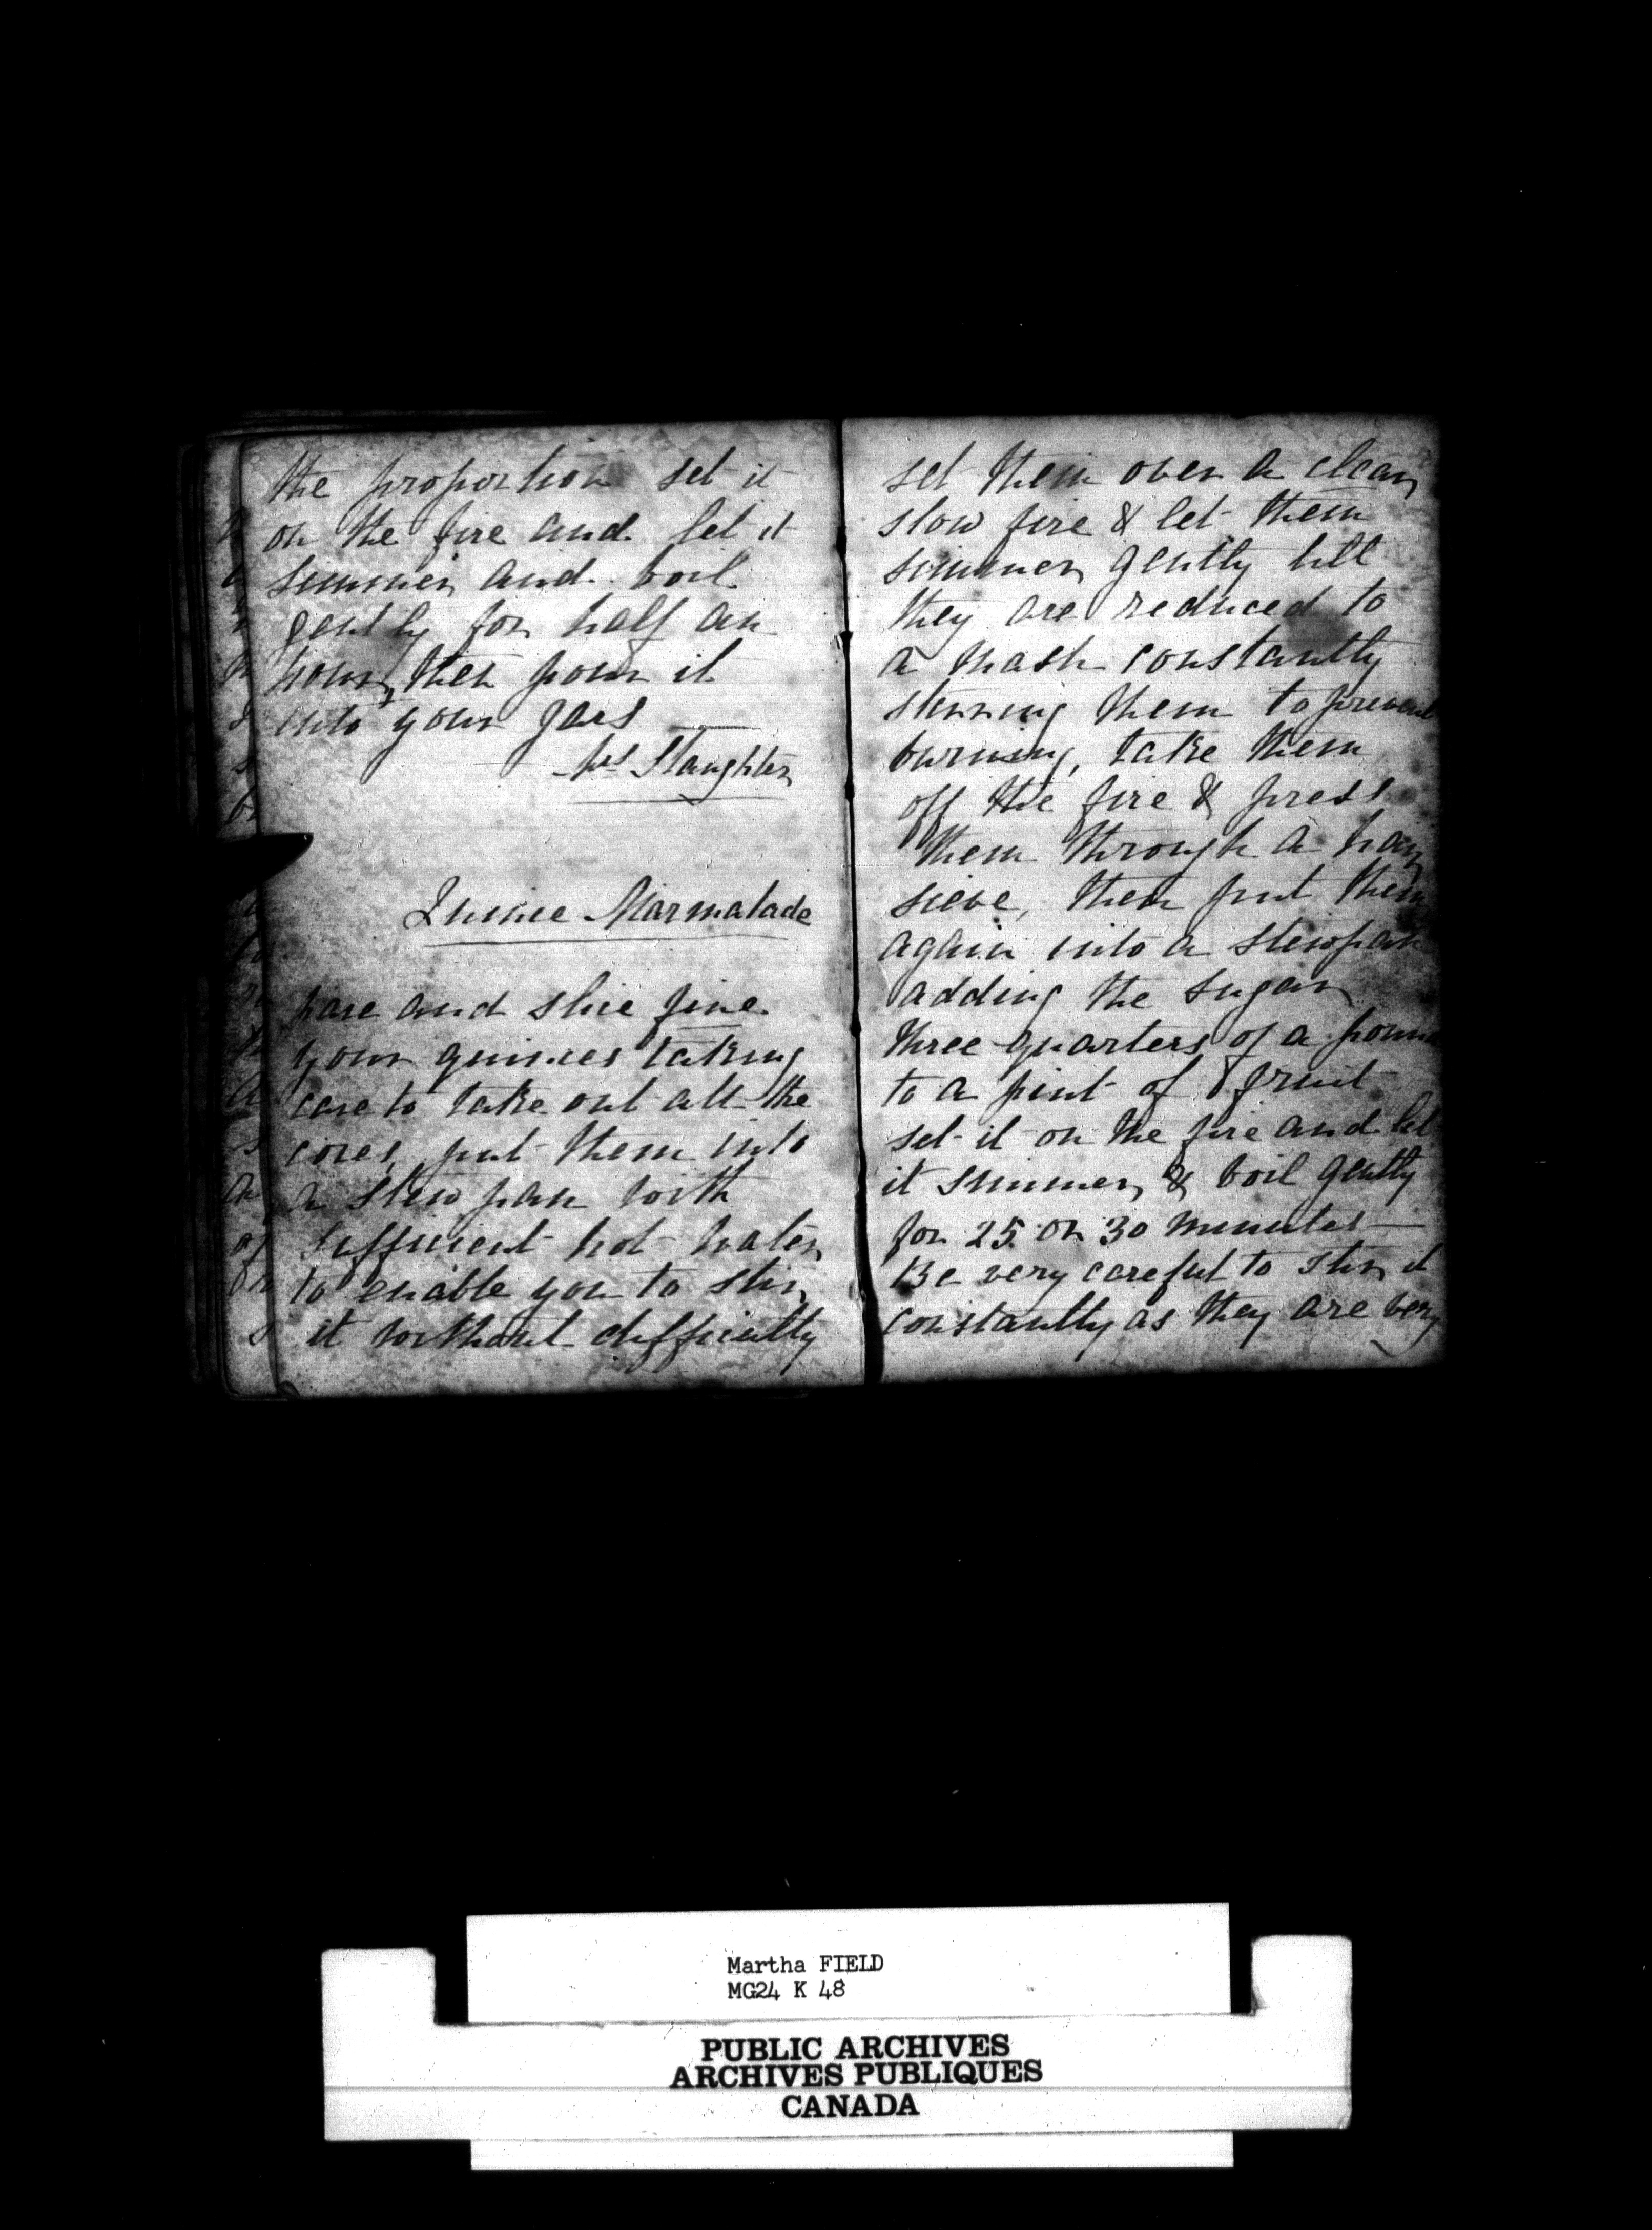 the proportion set it
on the fire and let it
simmer and boil
gently for half an
hour, then pour it
into your jars
Mrs Slaughter
Quince Marmalade
pare and slice fine
your quinces taking
care to take out all the
cores, put them into
a stew pan with
sufficient hot water
to enable you to stir
it without difficulty
set them over a clear
slow fire & let them
simmer gently till
they are reduced to
a mash constantly
stirring them to prevent
burning, take them
off the fire & press
them through a hair
sieve, then put them
again into a stewpan
adding the sugar
three quarters of a pound
to a pint of fruit
set it on the fire and let
it simmer & boil gently
for 25 or 30 minutes —
Be very careful to stir it
constantly as they are very
Martha FIELD
MG24 K 48
PUBLIC ARCHIVES
ARCHIVES PUBLIQUES
CANADA